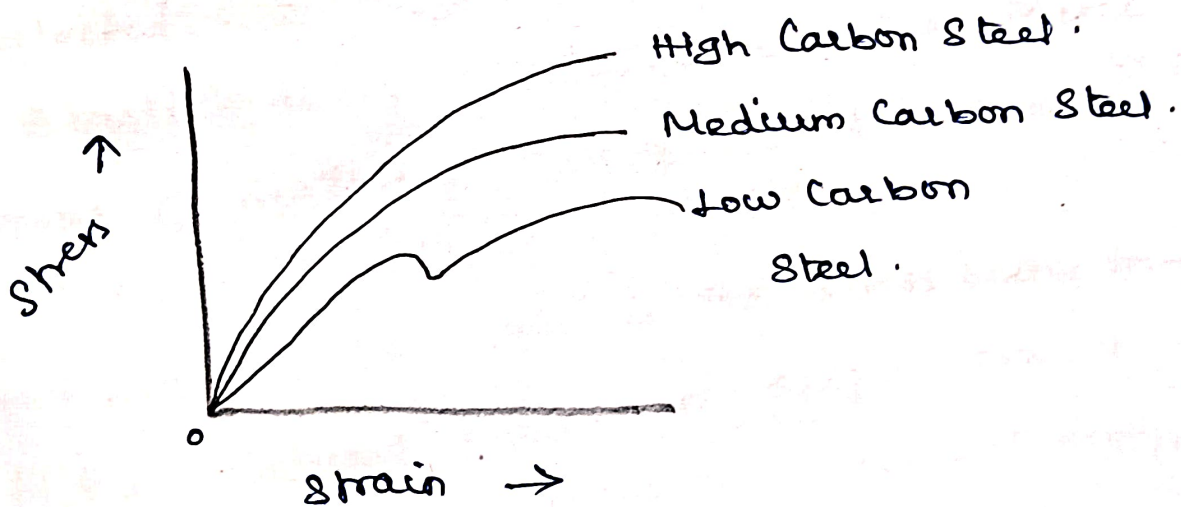 High Carbon Steel.
Medium Carbon Steel.
Low Carbon
Steel.
Stress
↑
0
Strain →